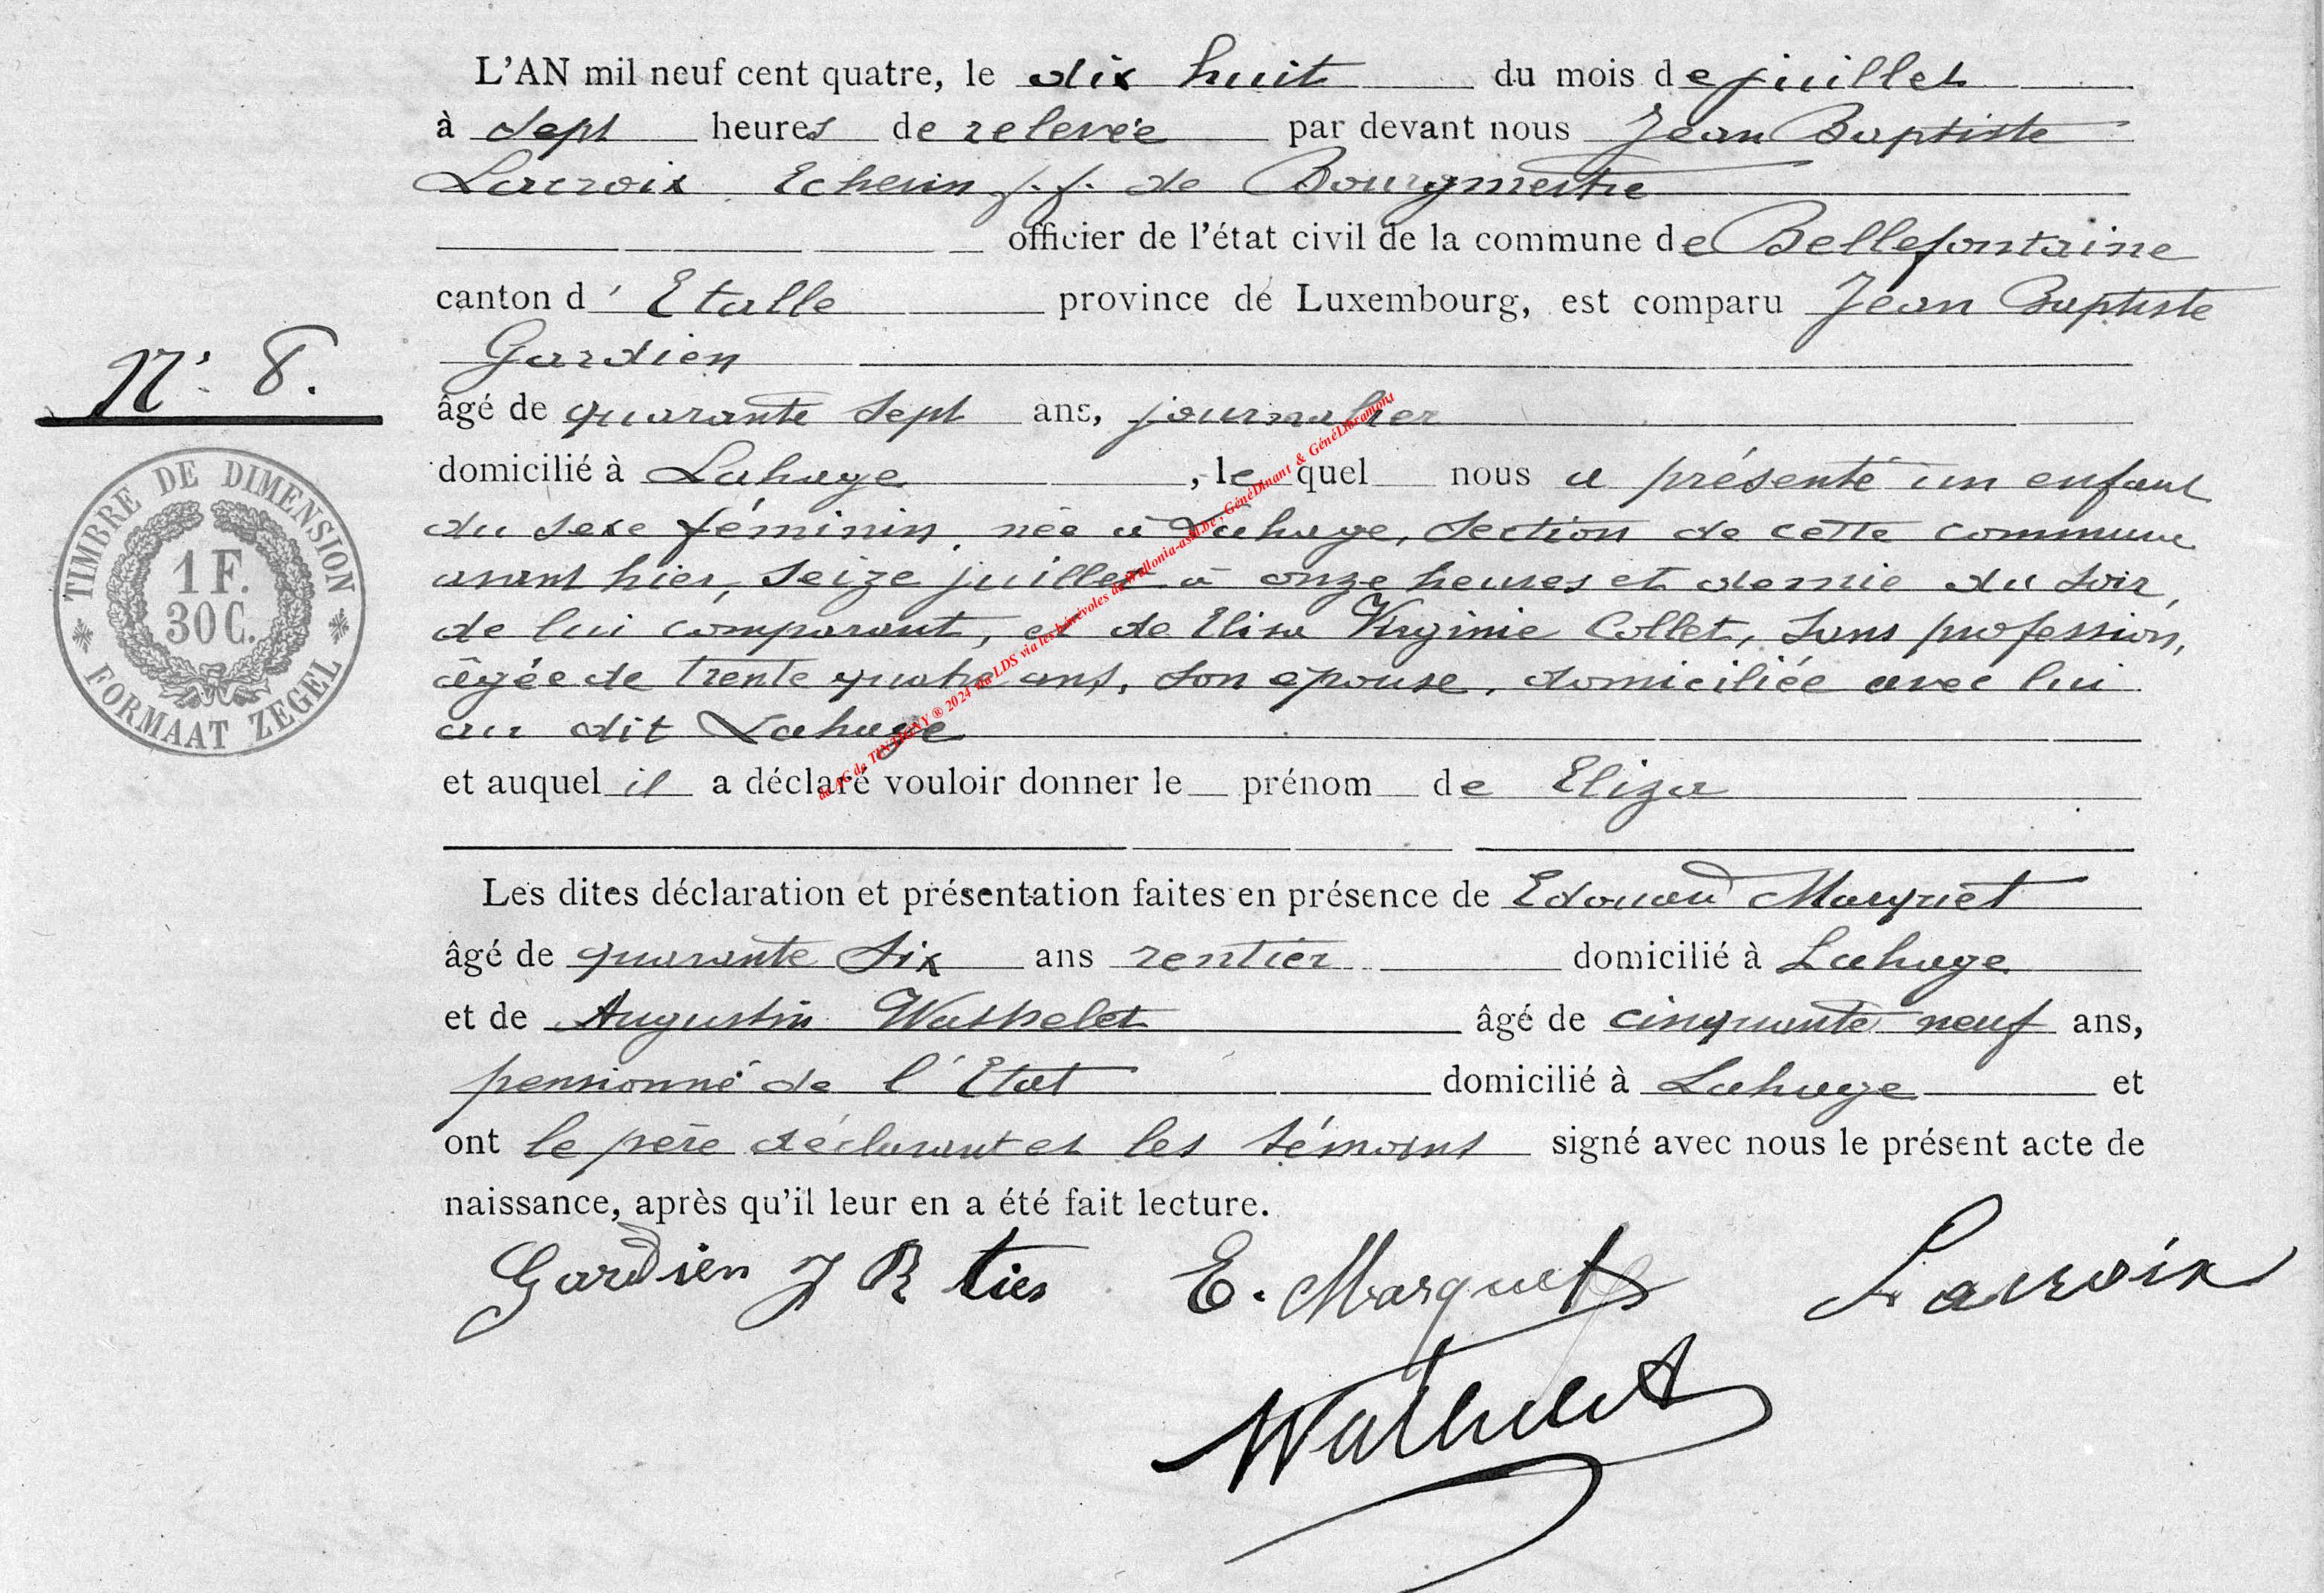 L'AN mil neuf cent quatre, le dix huit du mois de juillet
à sept heures de relevée par devant nous Jean Baptiste
Lacroix Echevin f.f. de Bourgmestre
officier de l'état civil de la commune de Bellefontaine
canton d'Etalle province de Luxembourg, est comparu Jean Baptiste
Gardien
N° 8.
âgé de quarante sept ans, journalier
domicilié à Lahage, lequel nous a présenté un enfant
du sexe féminin, née à Lahage, section de cette commune
avant hier, seize juillet à onze heures et demie du soir,
de lui comparant, et de Elisa Virginie Collet, sans profession,
âgée de trente quatre ans, son épouse, domiciliée avec lui
au dit Lahage
et auquel il a déclaré vouloir donner le prénom de Eliza
Les dites déclaration et présentation faites en présence de Edouard Marquet
âgé de quarante six ans rentier domicilié à Lahage
et de Augustin Wathelet âgé de cinquante neuf ans,
pensionné de l'Etat domicilié à Lahage et
ont le père déclarant et les témoins signé avec nous le présent acte de
naissance, après qu'il leur en a été fait lecture.
Gardien J B ties E. Marquet Lacroix
Wathelet
TIMBRE DE DIMENSION
1 F.
30 C.
FORMAAT ZEGEL
de TINTIGNY ® 2024 via LDS via les bénévoles de Wallonia-asbl.be, GénéDinant & GénéLibramont